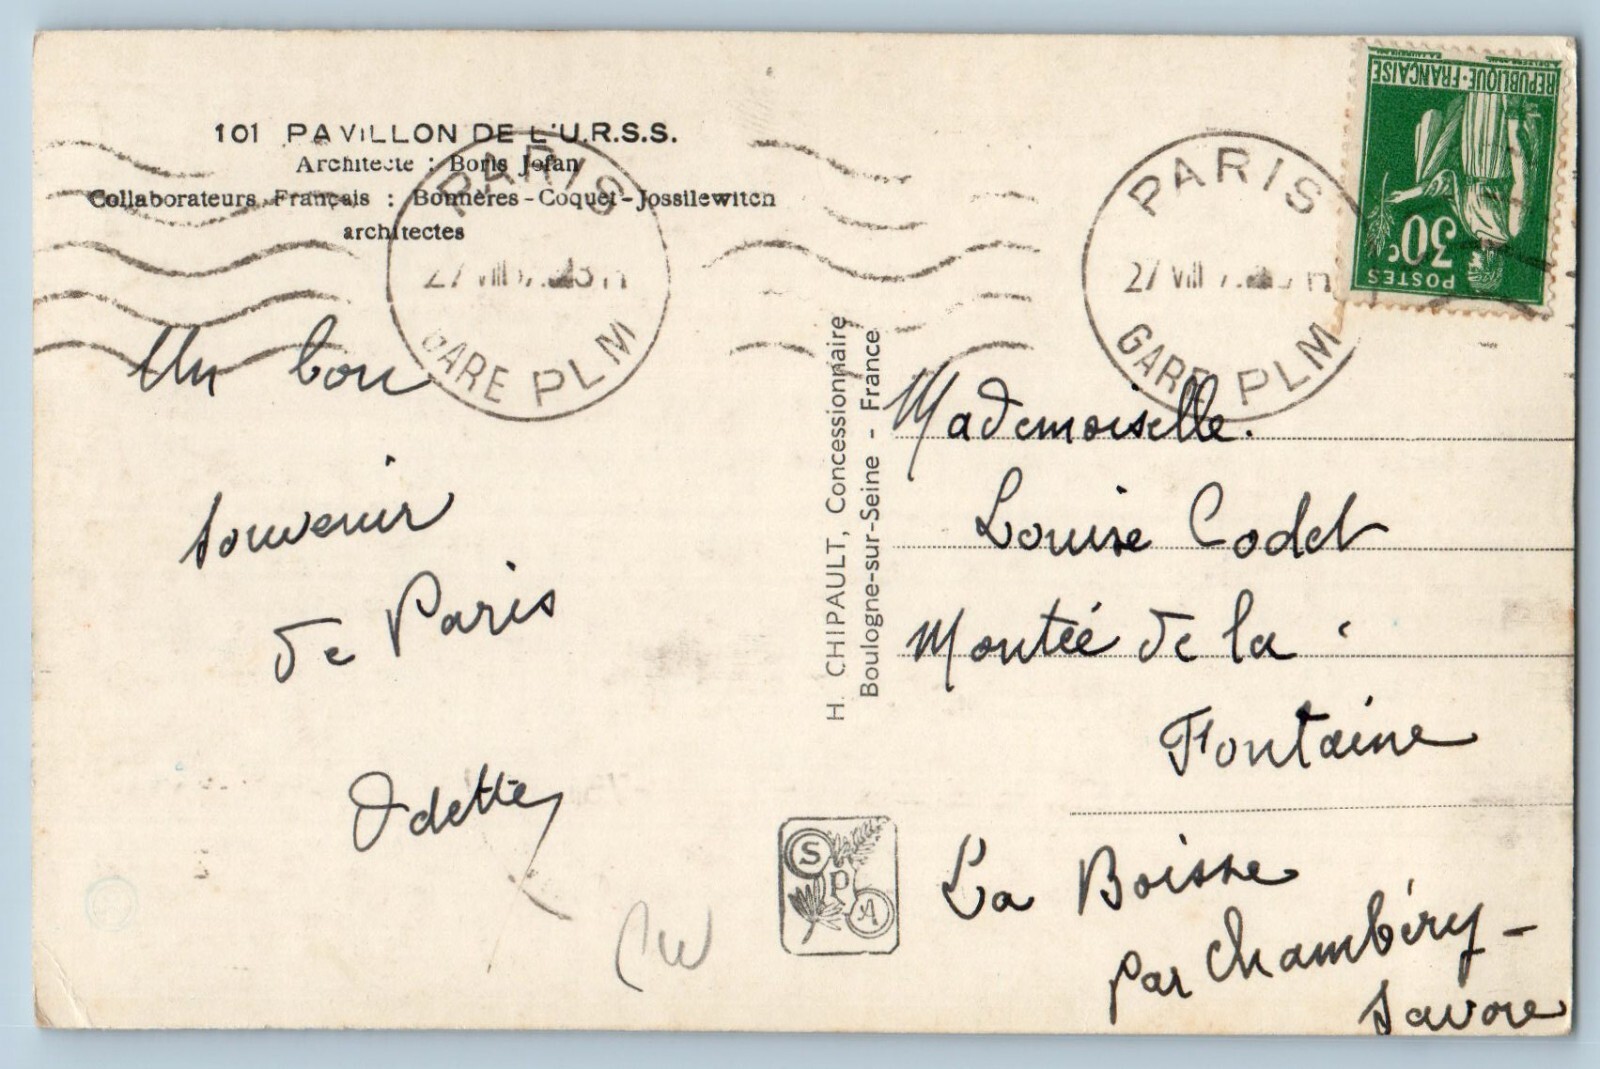 101 PAVILLON DE L'U.R.S.S.
Architecte : Boris Jofan
Collaborateurs Français : Bonnères - Coquet - Jossilewitch
architectes
PARIS
27 VIII
GARE PLM
Un bon
souvenir
de Paris
Odette
H. CHIPAULT, Concessionnaire
Boulogne-sur-Seine - France
S P A
PARIS
27 VIII
GARE PLM
REPUBLIQUE·FRANÇAISE
30c
POSTES
Mademoiselle.
Louise Codet
Montée de la
Fontaine
La Boisse
par Chambéry -
Savoie